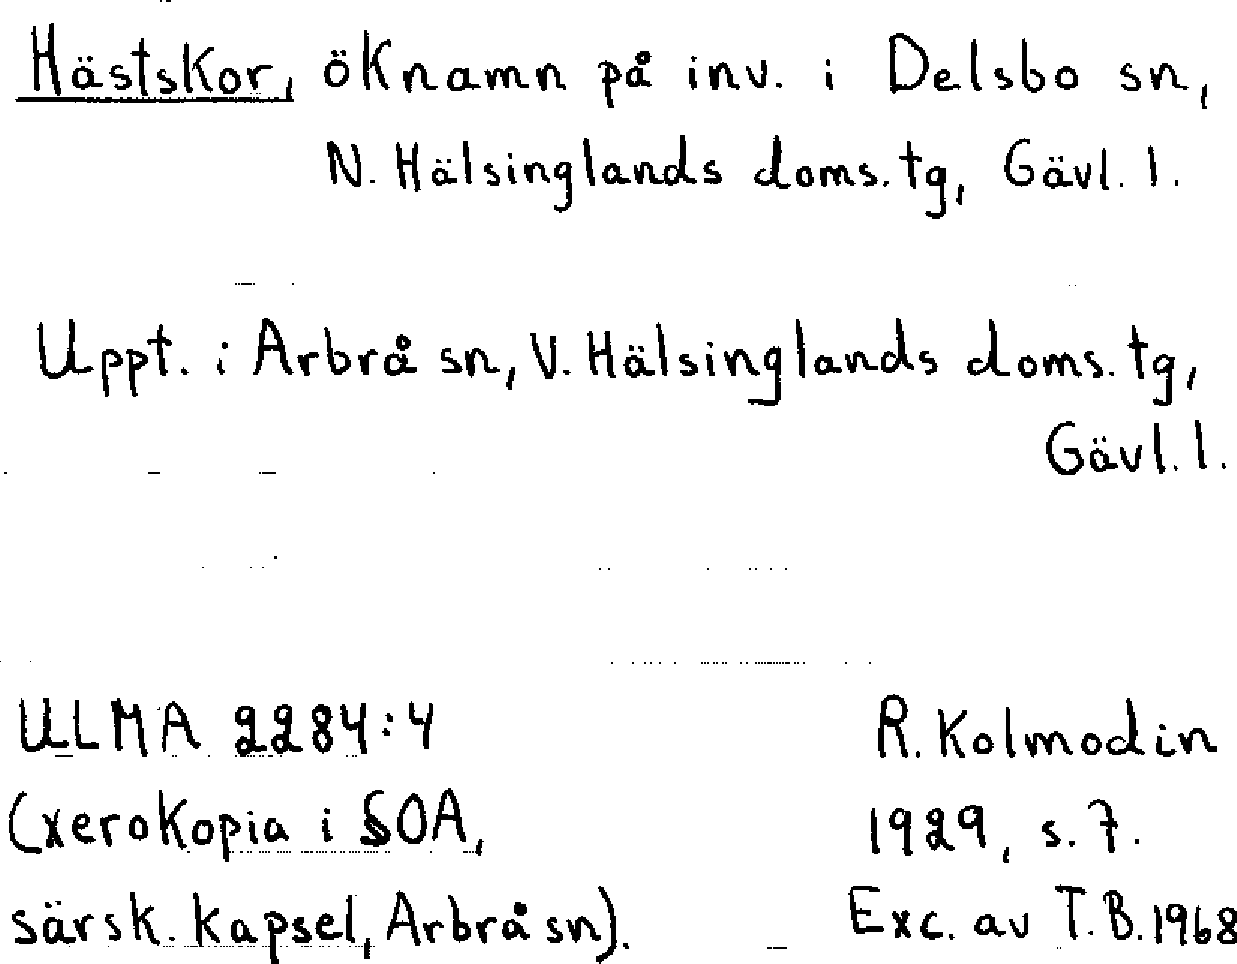 Hästskor, öknamn på inv. i Delsbo sn,
N. Hälsinglands doms.tg, Gävl. l.
Uppt. i Arbrå sn, V. Hälsinglands doms. tg,
Gävl. l.
ULMA 2284:4
(xerokopia i SOA,
särsk. kapsel, Arbrå sn).
R. Kolmodin
1929, s. 7.
Exc. av T.B. 1968